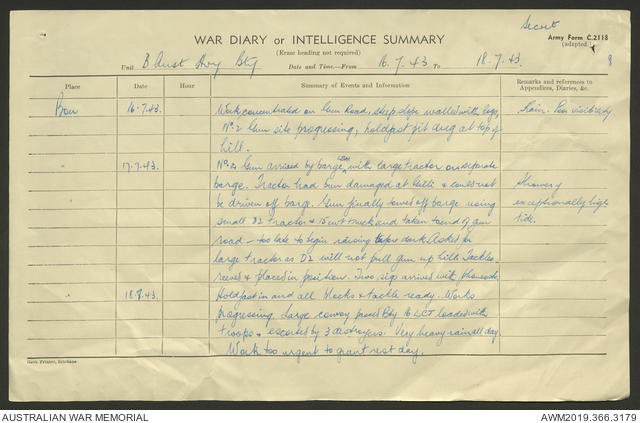 Secret
WAR DIARY or INTELLIGENCE SUMMARY
Army Form C.2118
(adapted.)
(Erase heading not required)
8
Unit B Aust Hvy Bty
Date and Time.—From 16.7.43 To 18.7.43.
Place
Date
Hour
Summary of Events and Information
Remarks and references to
Appendices, Diaries, &c.
16.7.43.
Work concentrated on Gun Road, steep slope walled with logs,
Rain. Poor visibility
No. 2 Gun site progressing, holdfast pit dug at top of
hill.
17.7.43.
No. 2 Gun arrived by barge with large tractor on separate
barge. Tractor had been damaged at & could not
Showery
be driven off barge. Gun finally towed off barge using
exceptionally high
small D2 tractor & 15 cwt truck and taken to end of gun
tide.
road – too late to begin raising before dark. Asked for
large tractor as D2 will not pull gun up hill. Tackles
reeved & placed in position. Two sigs arrived with
18.8.43.
Holdfast in and all blocks & tackle ready. Work
progressing. Large convoy passed Bty 16 LCT loaded with
troops & escorted by 3 destroyers. Very heavy rain all day.
Work too urgent to grant rest day.
Govt. Printer, Brisbane
AUSTRALIAN WAR MEMORIAL
AWM2019.366.3179